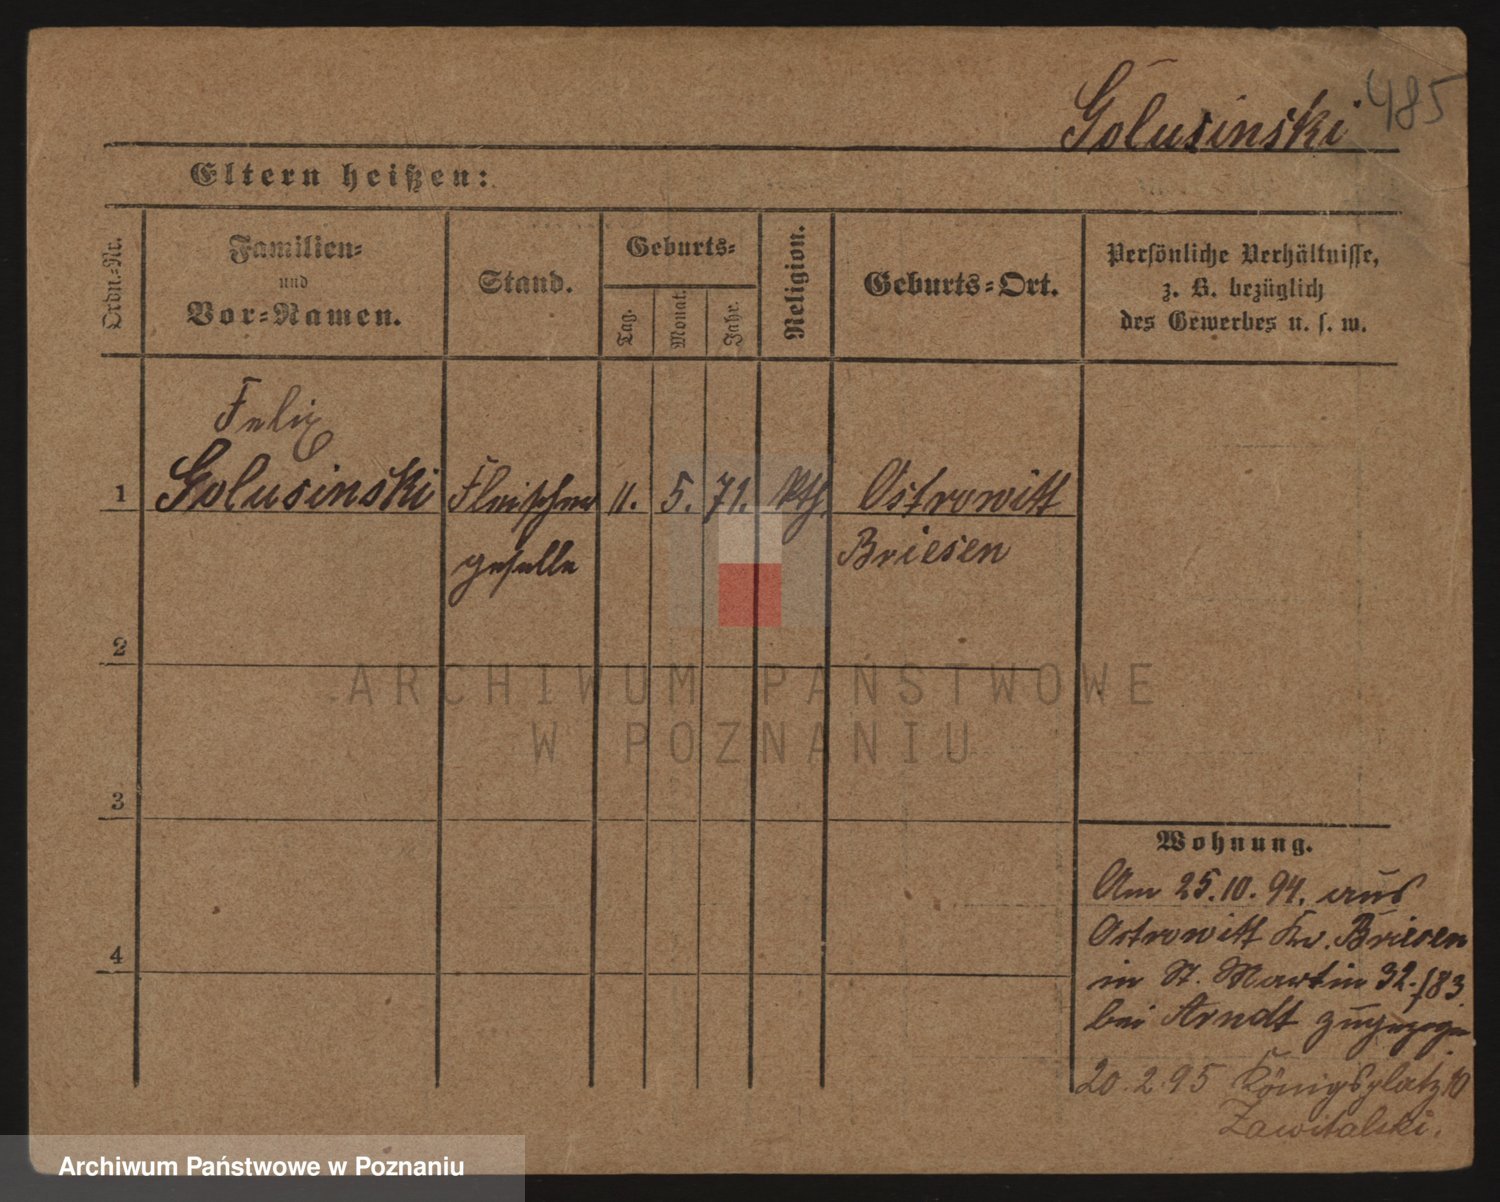 Golusinski
485
Eltern heißen:
Ordn.-Nr.
Familien-
und
Vor-Namen.
Stand.
Geburts-
Tag.
Monat.
Jahr.
Religion.
Geburts-Ort.
Persönliche Verhältnisse,
z. B. bezüglich
des Gewerbes u. s. w.
Felix
1 Golusinski Fleischer 11. 5. 71. kth. Ostrowitt
geselle Briesen
2
3
4
Wohnung.
Am 25.10.94. aus
Ostrowitt Kr. Briesen
in St. Martin 32./83
bei Arndt zugezogen
20.2.95 Königsplatz 10
Zawitalski.
ARCHIWUM PAŃSTWOWE
W POZNANIU
Archiwum Państwowe w Poznaniu